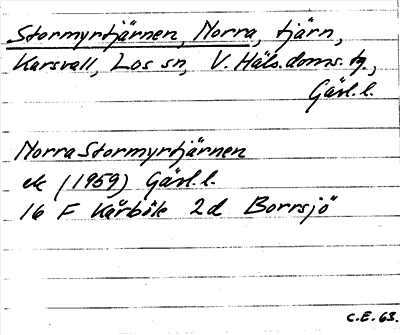 Stormyrtjärnen, Norra, tjärn,
Karsvall, Los sn, V. Häls. doms. tg,
Gävl. l.
Norra Stormyrtjärnen
ek (1959) Gävl. l.
16 F Kårböle 2d Borrsjö
C.E. 63.